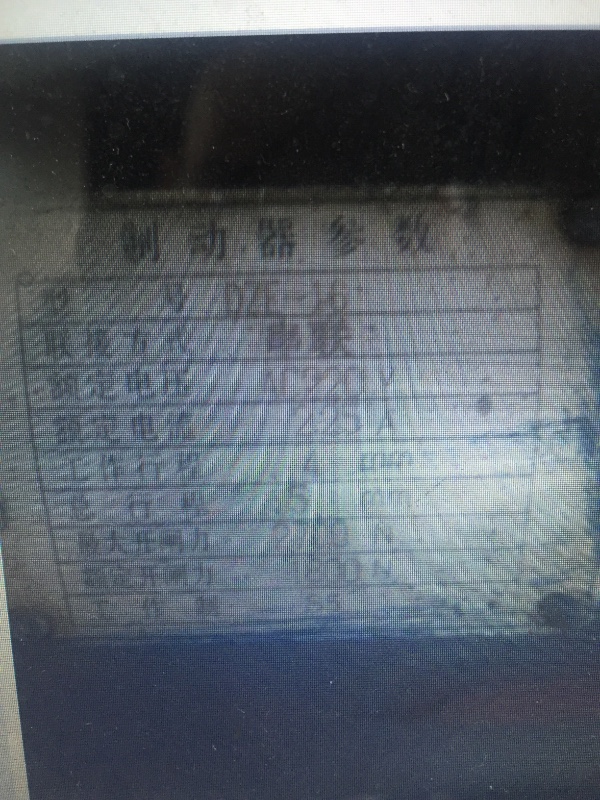 制动器参数
型 号 DZE-16
联接方式 串联
额定电压 AC220V
额定电流 A
工作行程 4 mm
总行程 5 mm
最大开闸力 N
额定开闸力 N
工作制 S5